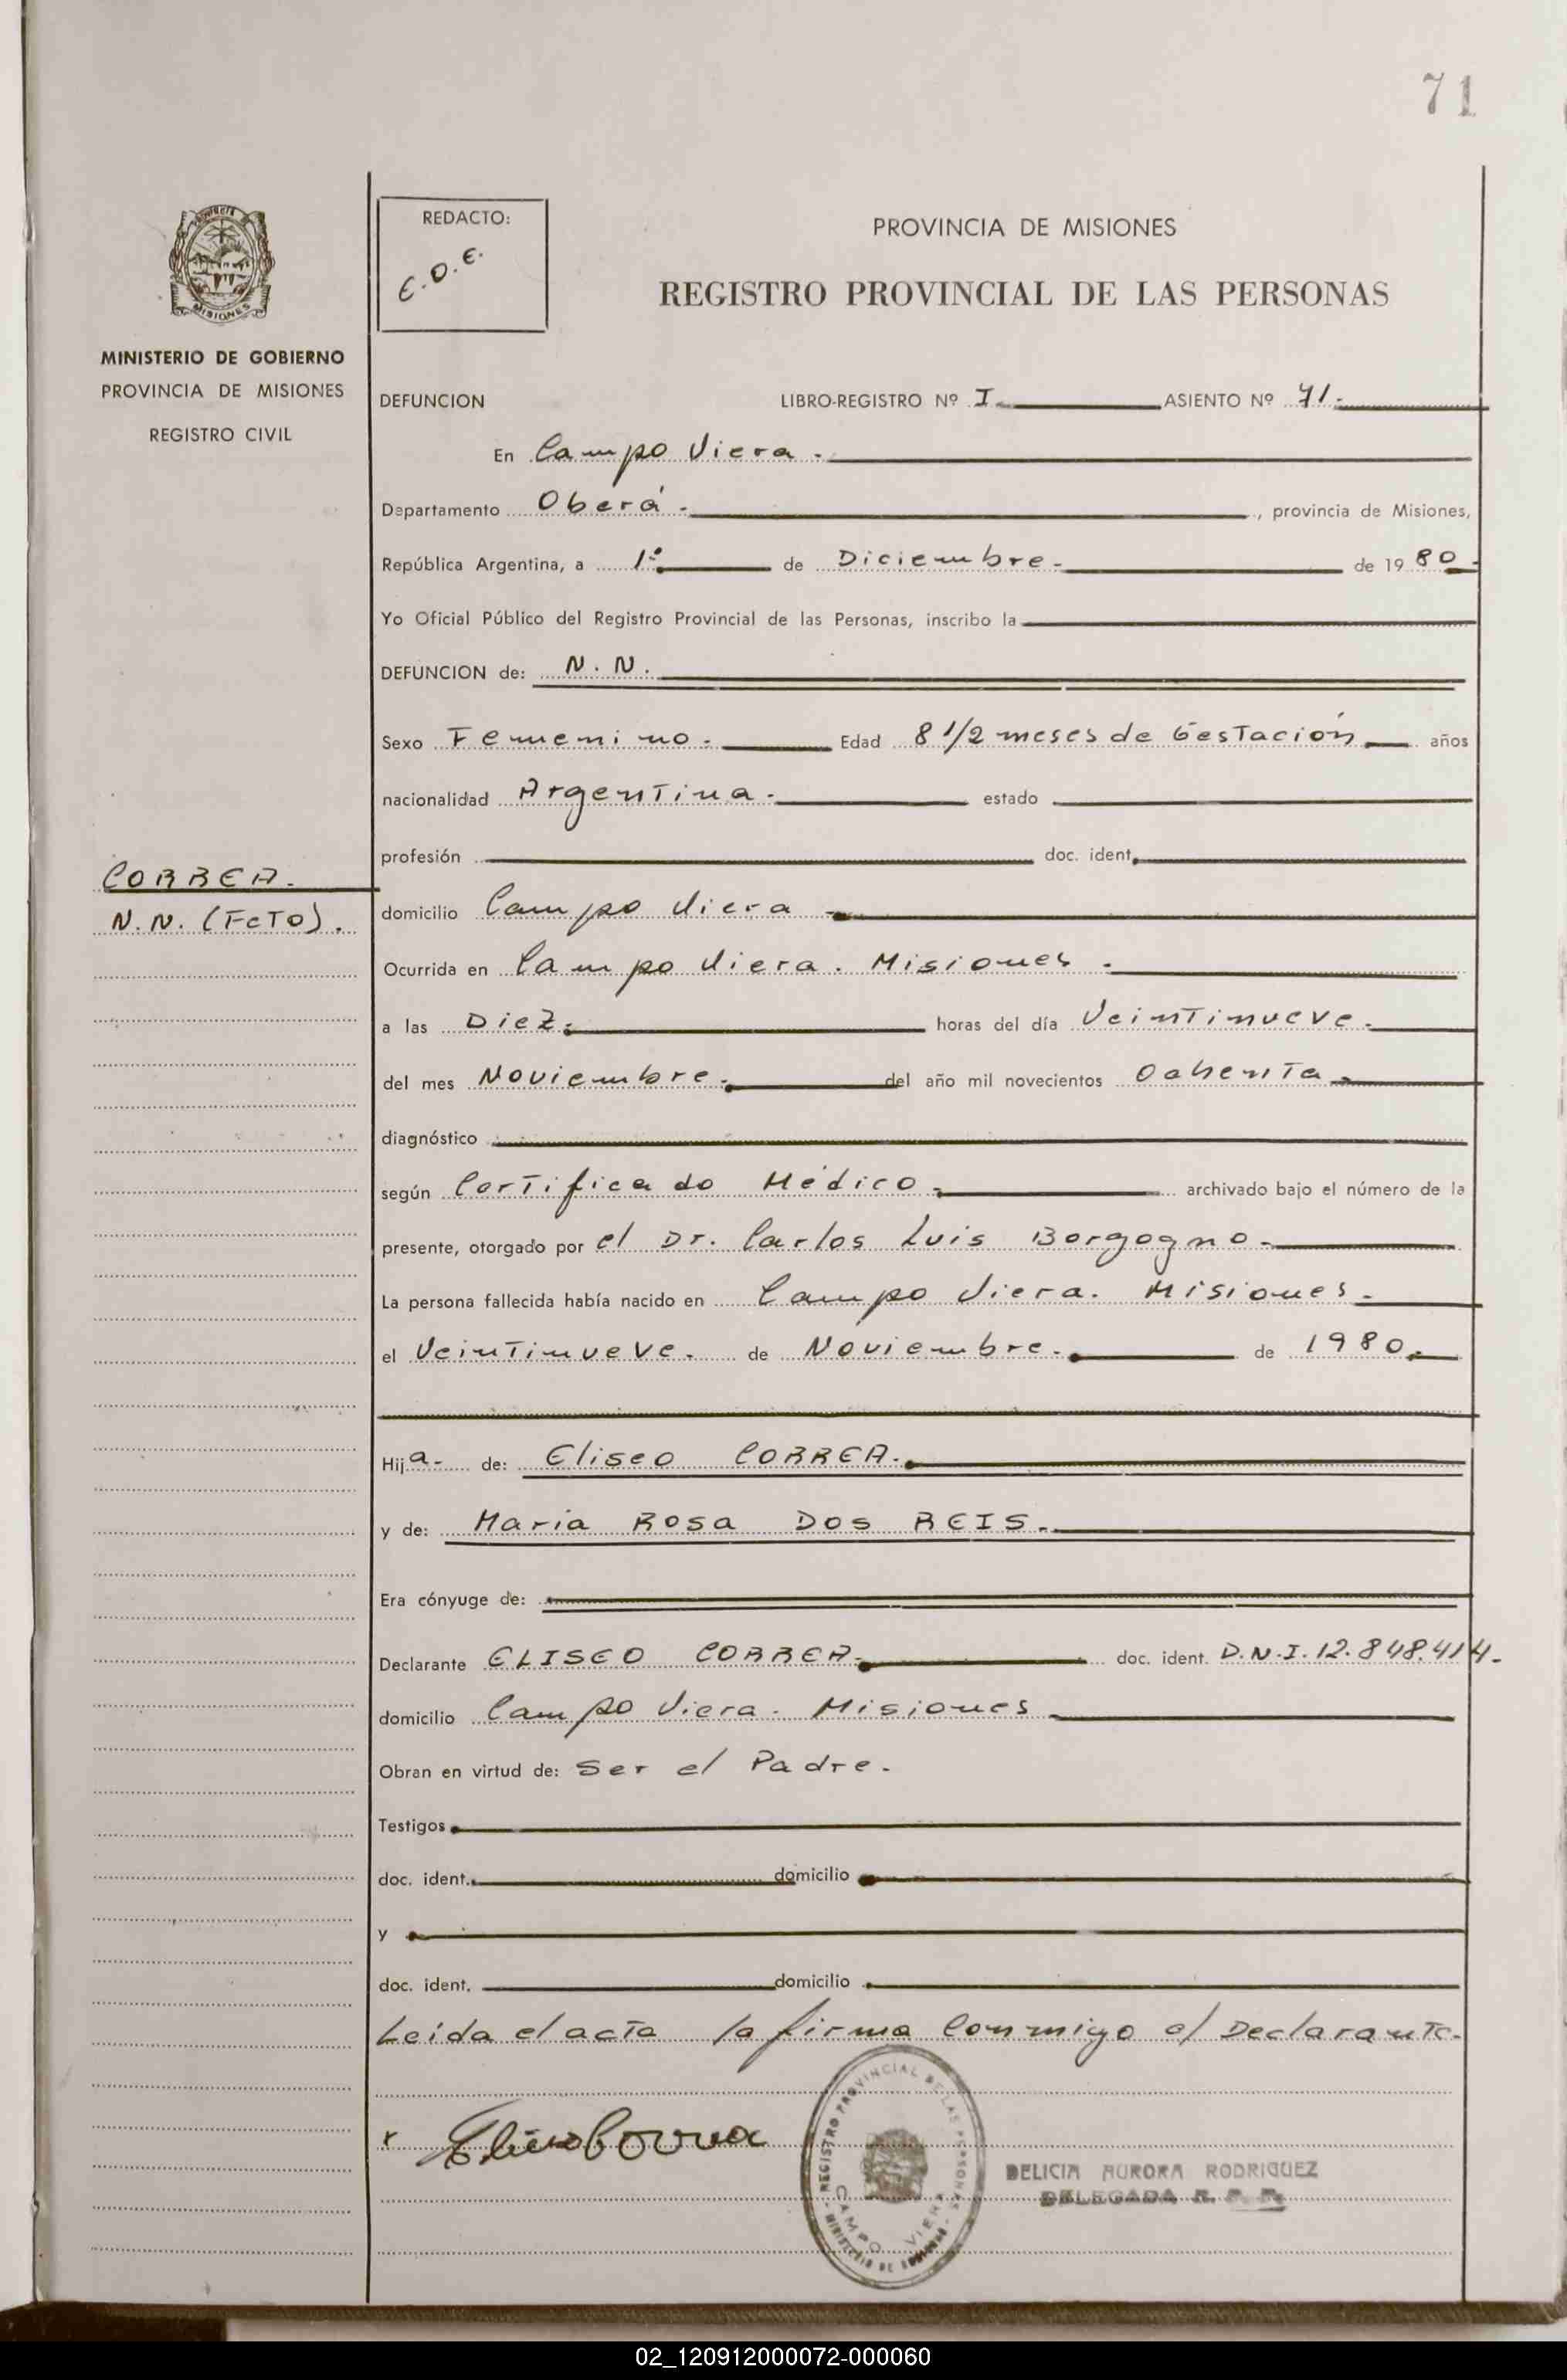 71
MISIONES
MINISTERIO DE GOBIERNO
PROVINCIA DE MISIONES
REGISTRO CIVIL
CORREA.
N.N. (FETO).
REDACTO:
E.O.E.
PROVINCIA DE MISIONES
REGISTRO PROVINCIAL DE LAS PERSONAS
DEFUNCION LIBRO-REGISTRO Nº I ASIENTO Nº 71.
En Campo Viera.
Departamento Oberá. , provincia de Misiones,
República Argentina, a 1º de Diciembre. de 19 80.
Yo Oficial Público del Registro Provincial de las Personas, inscribo la
DEFUNCION de: N. N.
Sexo Femenino. Edad 8 1/2 meses de Gestación años
nacionalidad Argentina. estado
profesión doc. ident.
domicilio Campo Viera
Ocurrida en Campo Viera. Misiones.
a las Diez. horas del día Veintinueve.
del mes Noviembre. del año mil novecientos Ochenta.
diagnóstico
según Certificado Médico. archivado bajo el número de la
presente, otorgado por el Dr. Carlos Luis Borgogno.
La persona fallecida había nacido en Campo Viera. Misiones.
el Veintinueve. de Noviembre. de 1980.
Hija. de: Eliseo CORREA.
y de: Maria Rosa DOS REIS.
Era cónyuge de:
Declarante ELISEO CORREA. doc. ident. D.N.I. 12.848.414.
domicilio Campo Viera. Misiones
Obran en virtud de: Ser el Padre.
Testigos
doc. ident. domicilio
y
doc. ident. domicilio
Leida el acta la firma Conmigo el Declarante.
Eliseo Correa
REGISTRO PROVINCIAL DE LAS PERSONAS
CAMPO VIERA
MINISTERIO DE GOBIERNO
DELICIA AURORA RODRIGUEZ
DELEGADA R. P. P.
02_120912000072-000060